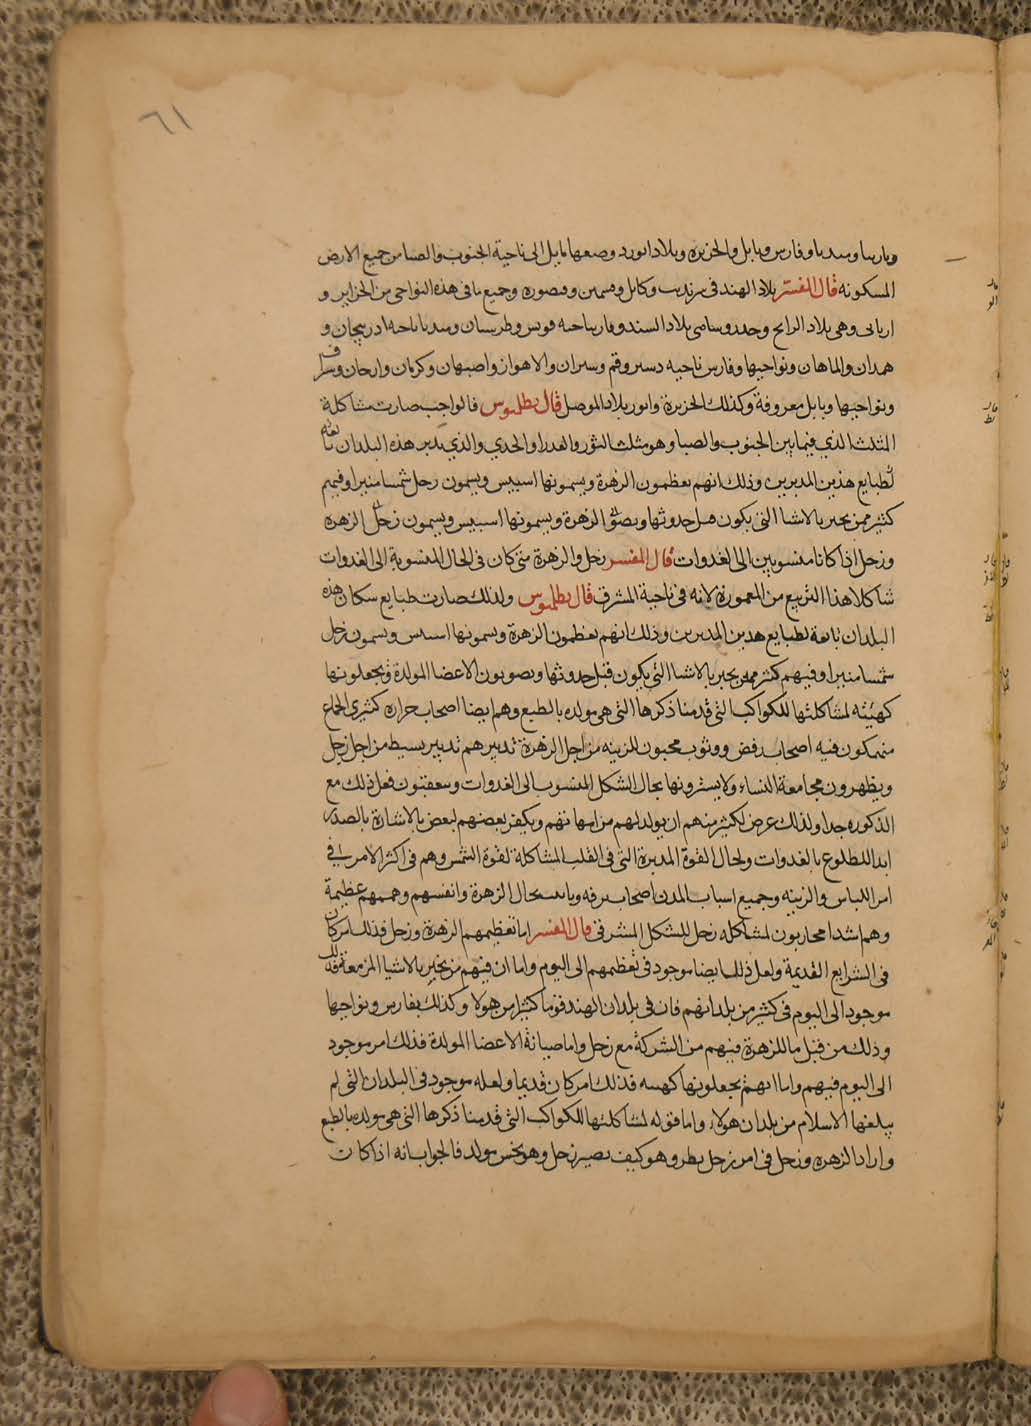 ٦١
وفارس وبابل والجزيره وبلاد اثور د وضعها مايل الى ناحية الجنوب والصبا من جميع الارض
المسكونه قال المفسر بلاد الهند فى سرنديب وكابل وقسمين ومنصوره وجميع ما فى هذه النواحى من الجزاير و
وهى بلاد الرانج بلاد السند ناحيه قومس وطبرستان ناحيه ادربيجان و
همدان والماهان ونواحيها وفارس ناحيه وقم والاهواز واصبهان وكرمان وارجان
ونواحيها وبابل معروفة وكذلك الجزيرة واثور بلاد الموصل قال بطلميوس فالواجب صارت مشاكلة
المثلث الذي فيما بين الجنوب والصبا وهو مثلث الثور والعدرا والجدي والذي يدبر هذه البلدان تابعه
لطبايع هذين المدبرين وذلك انهم يعظمون الزهرة ويسمونها اسييس ويسمون زحل شمسا منيرا وفيهم
كثير ممن يخبر بالاشيا التى يكون قبل حدوثها الزهرة ويسمونها اسييس ويسمون زحل الزهره
وزحل اذا كانا منسوبين الى الغدوات قال المفسر زحل والزهرة متى كان فى الحال المنسوبة الى الغدوات
شاكلا هذا التربيع من المعمورة لانه فى ناحية المشرق قال بطلميوس ولذلك صارت طبايع سكان هذه
البلدان تابعة لطبايع هدين المدبرين وذلك انهم يعظمون الزهرة ويسمونها اسيس ويسمون زحل
شمسا منيرا وفيهم كثير ممن يخبر بالاشيا التى يكون قبل حدوثها ويصونون الاعضا المولدة ويجعلونها
كهيئته لمشاكلتها للكواكب التى قدمنا ذكرها التى هى مولده بالطبع وهم ايضا اصحاب حراره كثيرى الجماع
منهمكون فيه اصحاب رفض ووثوب محبون للزينه من اجل الزهرة تدبيرهم تدبير بسيط من اجل زحل
ويظهرون مجامعة النساء ولا يسترونها بحال الشكل المنسوب الى الغدوات فعل ذلك مع
الذكوره جدا ولذلك عرض لكثير منهم ان يولد لهم من امهاتهم ويكفر بعضهم لبعض بالاشارة بالصدر
ابدا للطلوع بالغدوات ولحال القوة المدبرة التى فى القلب المشاكلة لقوة الشمس وهم فى اكثر الامر
امر اللباس والزينه وجميع اسباب المدن اصحاب ترفه لحال الزهرة وانفسهم وهممهم عظيمة
وهم اشدا محاربون لمشاكله زحل للشكل المشرقى قال المفسر اما تعظيمهم الزهرة وزحل فذلك امر كان
فى الشرايع القديمة ولعل ذلك ايضا موجود فى تعظمهم الى اليوم واما ان فيهم من يخبر بالاشيا المزمعة فذلك
موجود الى اليوم فى كثير من بلدانهم فان فى بلدان الهند قوما كثيرا من هولا وكذلك بفارس ونواحيها
وذلك من قبل ما للزهرة فيهم من الشركة مع زحل واما صيانة الاعضا المولدة فذلك امر موجود
الى اليوم فيهم واما انهم يجعلونها فذلك امر كان قديما ولعله موجود فى البلدان التى لم
يبلغها الاسلام من بلدان هولاء واما قوله لمشاكلتها للكواكب التى قدمنا ذكرها التى هى مولده بالطبع
واراد الزهره وزحل فى امر زحل وهو كيف يصير زحل وهو نحس مولد فالجواب انه اذا كان